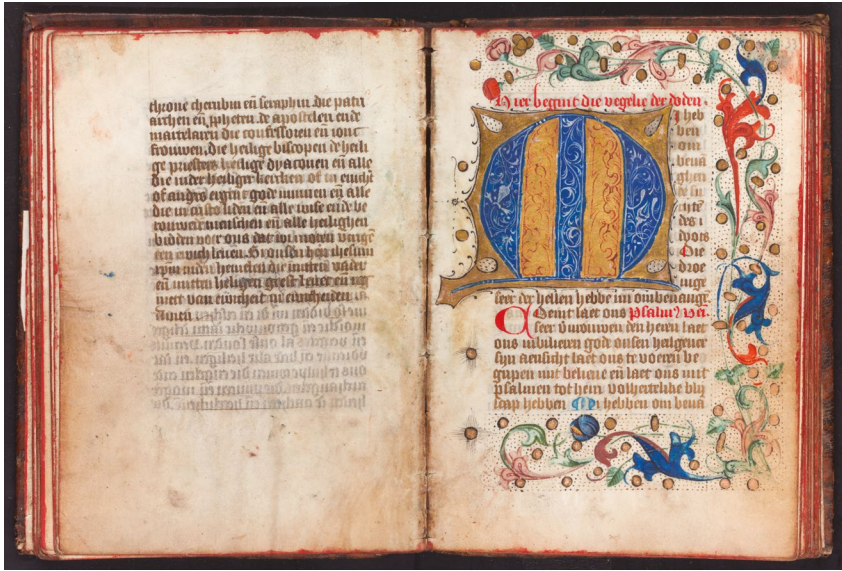 throne cherubin en̄ seraphin die patri
archen en̄ ꝓpheten de apostelen ende
martelaren die confessoren en̄ ionc
frouwen die heilige biscopen de heili
ge priesters heilige dyaconen en̄ alle
die in der heiliger kercken of in eincht
of anders eirgent gode mynnen en̄ alle
die in cristo liden en̄ alle wise ende be
touwede menschen en̄ alle heilighen
bidden voer ons dat wi moten
een ewich leuen
xpm inden hemelen die metten vader
en̄ metten heiligen geest leuet en̄ reg
neert van ewicheit
Amen
Hier begint die vegelie der doden.
M
i heb
ben
om
beuā
ghen
de su
chtē
des
doots
Die
droe
nisse
seer der hellen hebbe mi ombeuangē.
Coemt laet ons psalm vēi
seer vrouwen den heren laet
ons iubilieren gode onsen heilgeuer
syn aensicht laet ons te voeren be
gripen mit beliene en̄ laet ons mit
psalmen tot hem volhertelike blij
scap hebben Mi hebben om beuā